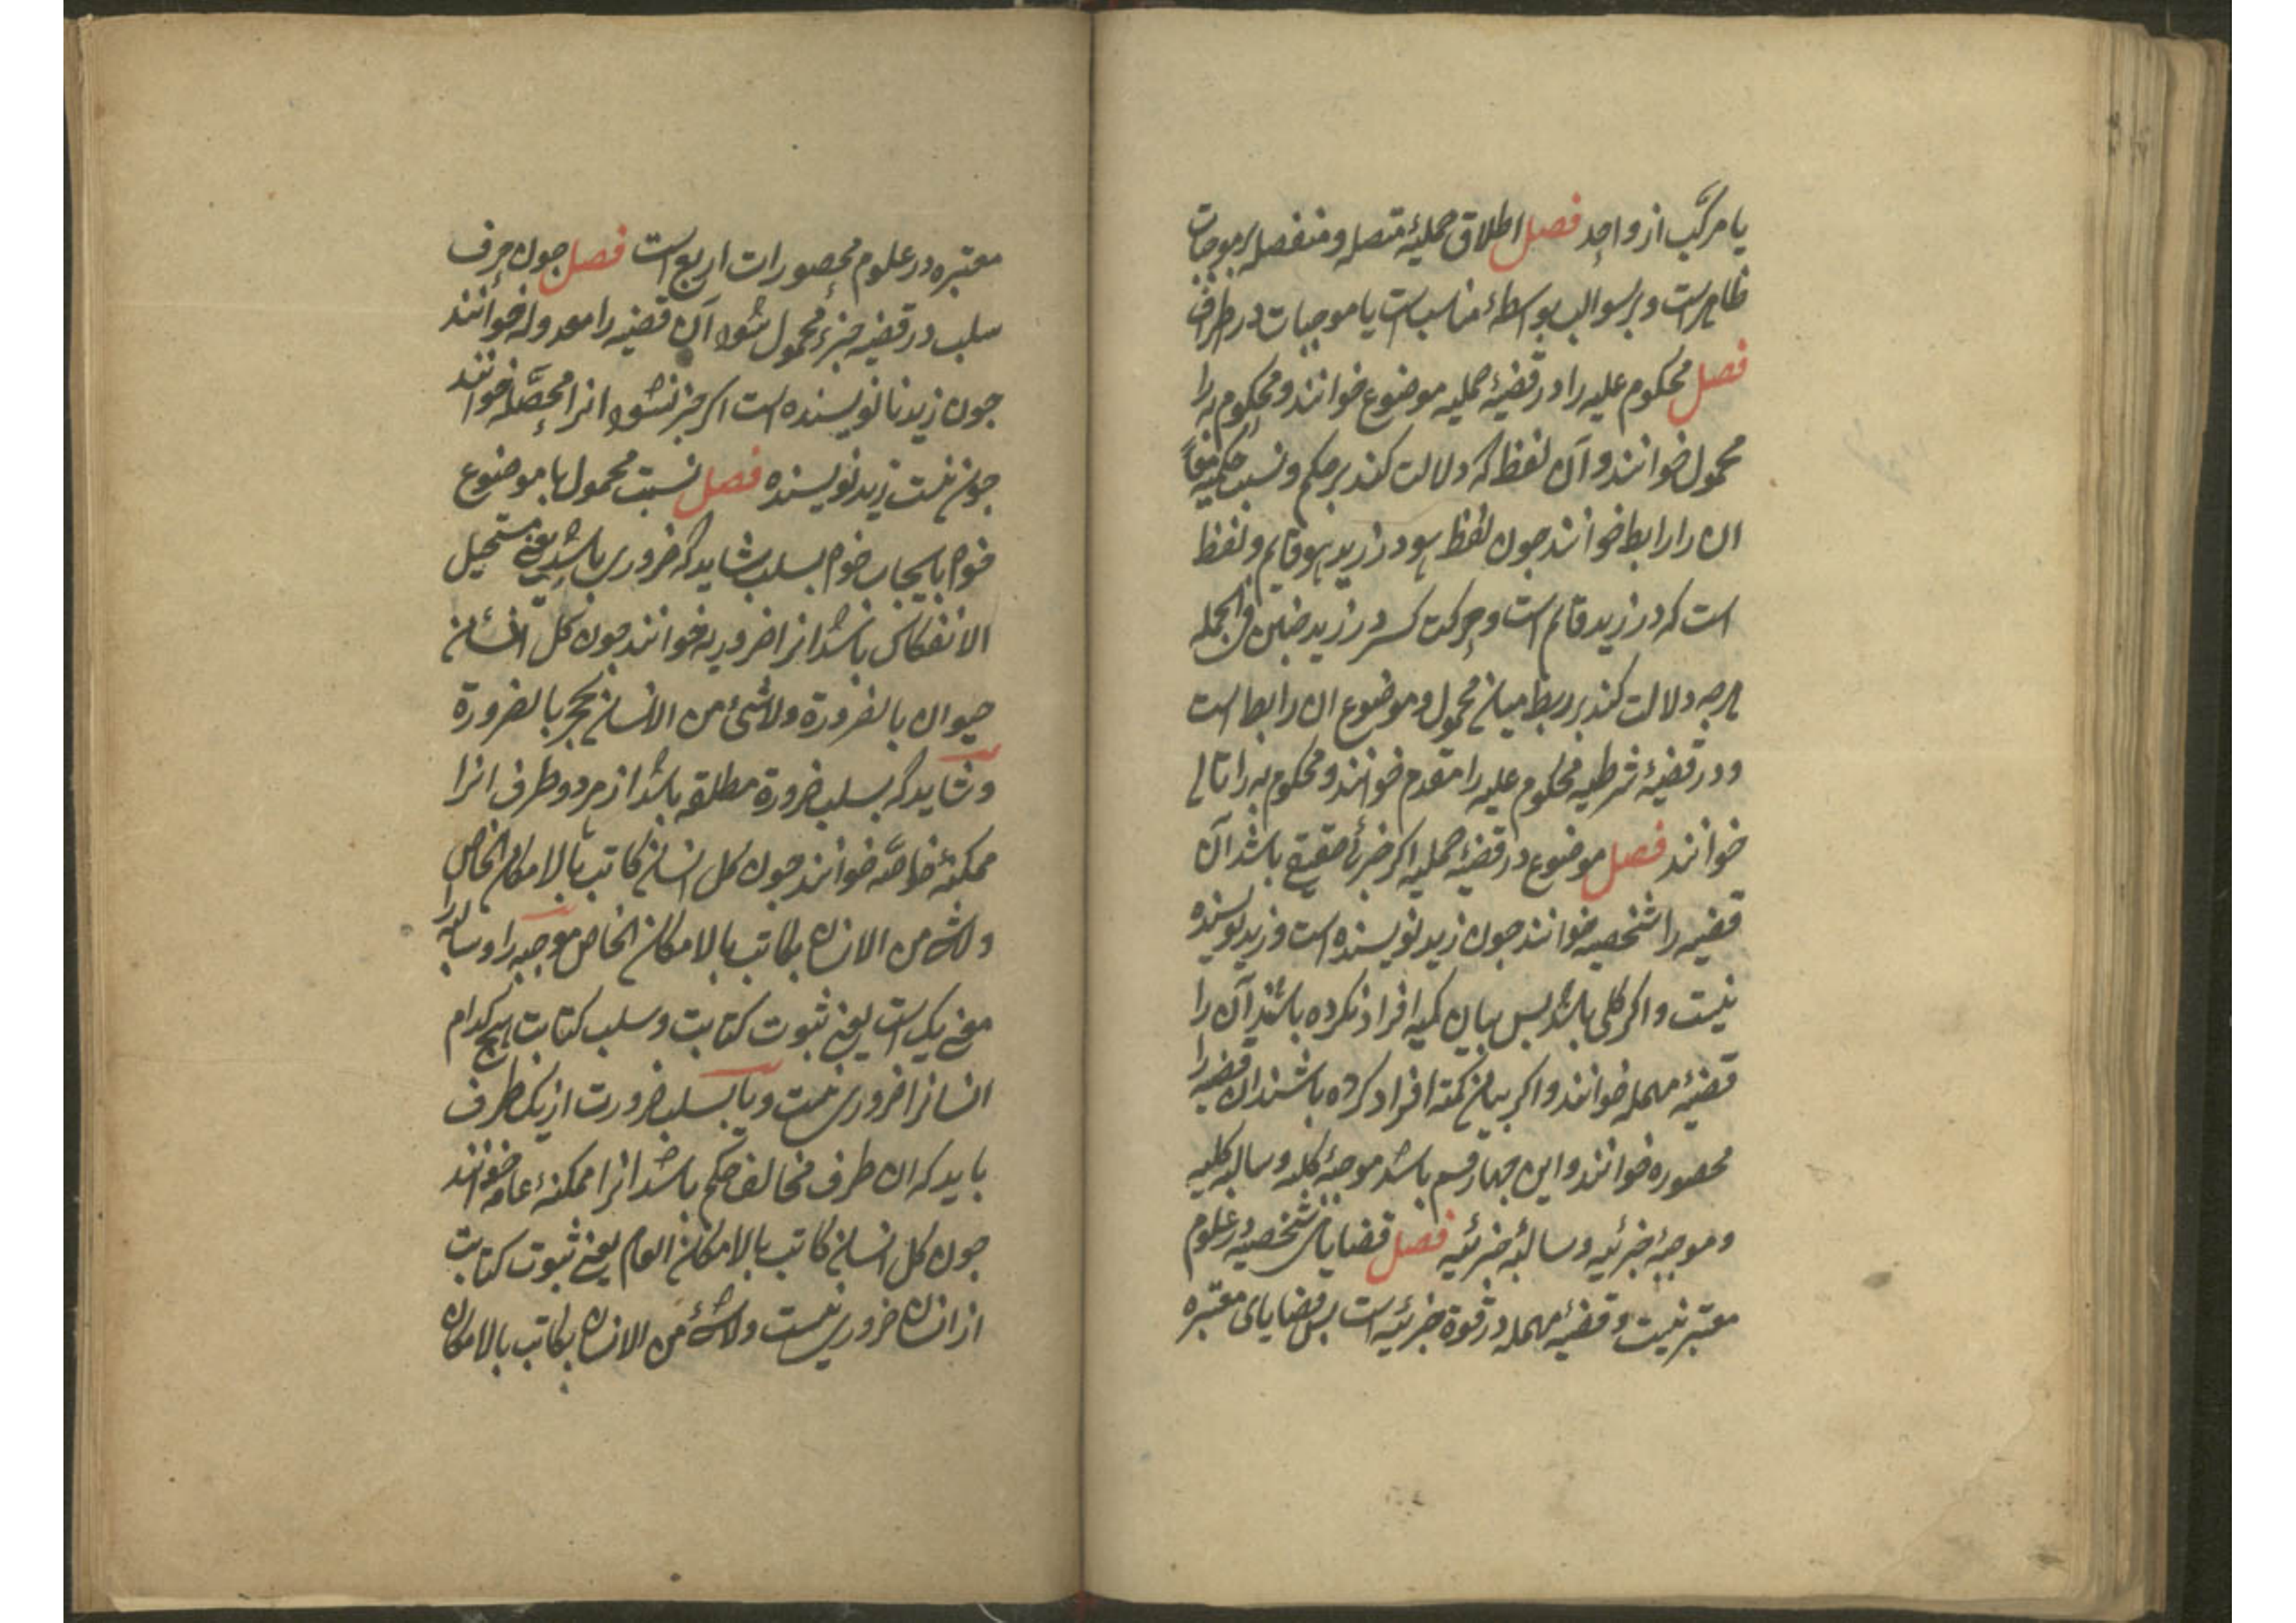 یا مرکب از واحد فصل اطلاق حملیهٔ متصله و منفصله بر موجبات
ظاهرست و بر سوالب بواسطهٔ مناسبات با موجبات در اطراف
فصل محکوم علیه را در قضیهٔ حملیه موضوع خوانند و محکوم به را
محمول خوانند و آن لفظ که دلالت کند بر حکم و نسبت حکمیه معاً
ان را رابطه خوانند چون لفظ هو در زید هو قایم و لفظ
است که در زید قائم است و حرکت کسر در زید دبیر فی الجمله
هرچه دلالت کند بر ربط میان محمول و موضوع ان رابطه است
و در قضیهٔ شرطیه محکوم علیه را مقدم خوانند و محکوم به را تالی
خوانند فصل موضوع در قضیهٔ حملیه اکر جزئی حقیقی باشد آن
قضیه را شخصیه خوانند جون زید نویسنده است و زید نویسنده
نیست و اکر کلی باشد بس بیان کمیه افراد نکرده باشند آن را
قضیهٔ مهمله خوانند و اکر بیان کمیة افراد کرده باشند ان قضیه را
محصوره خوانند و این چهار قسم باشد موجبهٔ کلیه و سالبه کلیه
و موجبهٔ جزئیه و سالبهٔ جزئیه فصل قضایای شخصیه در علوم
معتبر نیست و قضیهٔ مهمله در قوة جزئیه است بس قضایای معتبره
معتبره در علوم محصورات اربع است فصل جون حرف
سلب در قضیه جزء محمول شود آن قضیه را معدوله خوانند
جون زید نانویسنده است اکر جزء نشود انرا محصّله خوانند
جون نیست زید نویسنده فصل نسبت محمول با موضوع
خواه بایجاب خواه بسلب شاید که ضروری باشد یعنی مستحیل
الانفکاک باشد انرا ضروریه خوانند جون کل انسان
حیوان بالضرورة و لاشئ من الانسان بحجر بالضرورة
و شاید که بسلب ضرورة مطلقه باشد از هر دو طرف انرا
ممکنهٔ خاصّه خوانند جون کل انسان کاتب بالامکان الخاص
و لاشئ من الانسان بکاتب بالامکان الخاص موجبه را و سالبه را
معنی یک است یعنی ثبوت کتابت و سلب کتابت هیچ کدام
انسانرا ضروری نیست و یا بسلب ضرورت از یک طرف
باید که ان طرف مخالف حکم باشد انرا ممکنهٔ عامه خوانند
جون کل انسان کاتب بالامکان العام یعنی ثبوت کتابت
از انسان ضروری نیست و لاشئ من الانسان بکاتب بالامکان